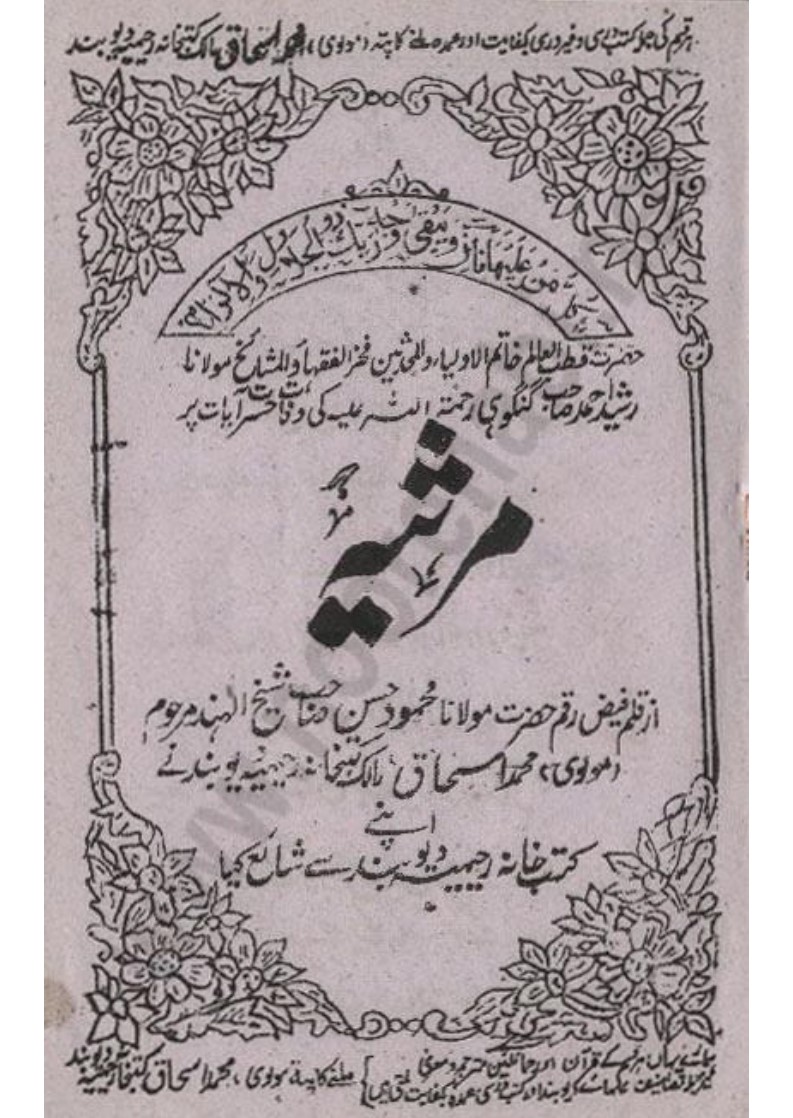 ہر قسم کی جملہ کتب درسی وغیر درسی بکفایت اور عمدہ ملنے کا پتہ (مولوی) محمد اسحاق مالک کتبخانہ رحیمیہ دیوبند
كُلُّ مَنْ عَلَيْهَا فَانٍ وَيَبْقَى وَجْهُ رَبِّكَ ذُو الْجَلَالِ وَالْإِكْرَامِ
حضرت قطب العالم خاتم الاولیاء والمحدثین فخر الفقہاء والمشائخ مولانا
رشید احمد صاحب گنگوہی رحمتہ اللہ علیہ کی وفات حسرت آیات پر
مرثیہ
از قلم فیض رقم حضرت مولانا محمود حسن صاحب شیخ الہند مرحوم
(مولوی) محمد اسحاق مالک کتبخانہ رحیمیہ دیوبند نے
اپنے
کتب خانہ رحیمیہ دیوبند سے شائع کیا
ہمارے یہاں ہر قسم کے قرآن اور حمائلیں مترجم و معریٰ
تصانیف علمائے دیوبند اور کتب درسی عمدہ بکفایت ملتی ہیں
ملنے کا پتہ مولوی محمد اسحاق کتبخانہ رحیمیہ دیوبند